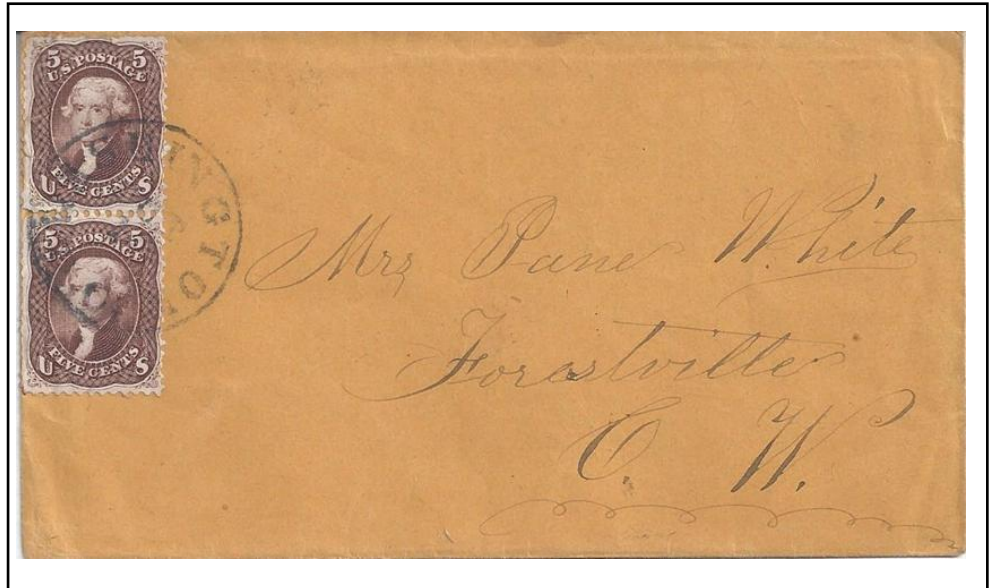 5 5
U.S. POSTAGE
FIVE CENTS
U S
5 5
U.S. POSTAGE
FIVE CENTS
U S
INGTO
Mrs Jane White
Forestville
C. W.